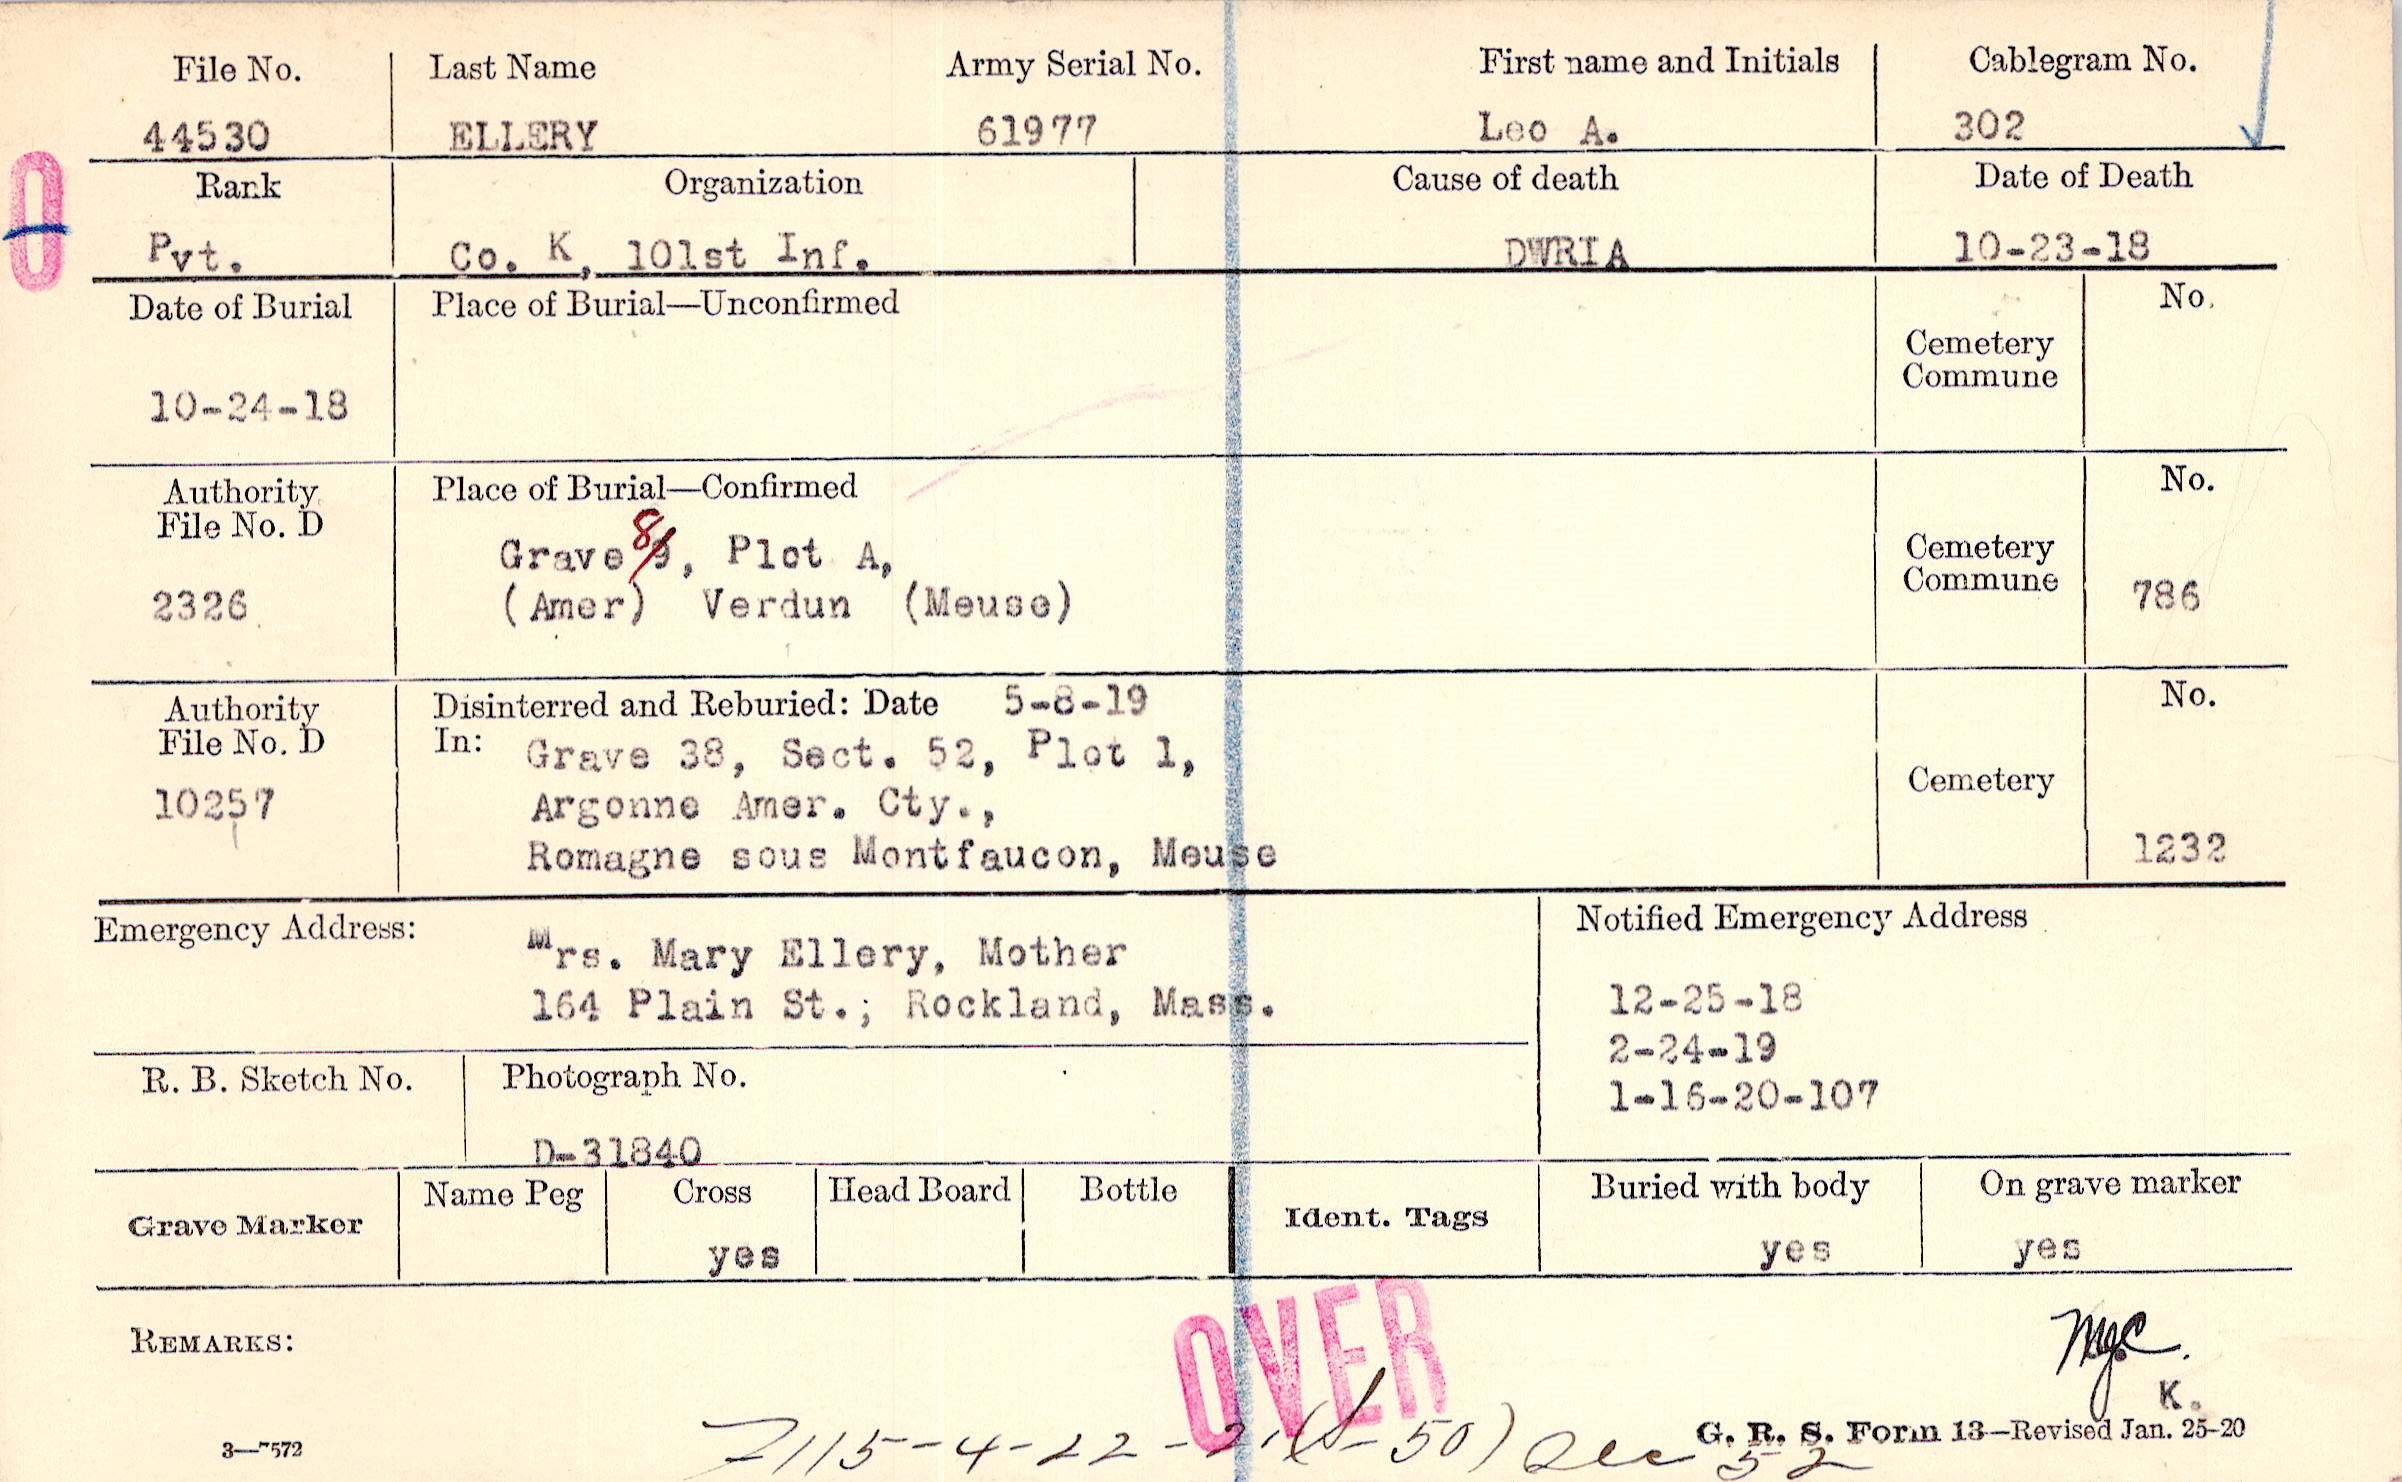 File No. Last Name Army Serial No. First name and Initials Cablegram No.
44530 ELLERY 61977 Leo A. 302
Rank Organization Cause of death Date of Death
Pvt. Co. K, 101st Inf. DWRIA 10-23-18
Date of Burial Place of Burial—Unconfirmed No.
Cemetery
Commune
10-24-18
Authority Place of Burial—Confirmed No.
File No. D
8
Grave 9, Plot A, Cemetery
2326 (Amer) Verdun (Meuse) Commune 786
Authority Disinterred and Reburied: Date 5-8-19 No.
File No. D In: Grave 38, Sect. 52, Plot 1,
10257 Argonne Amer. Cty., Cemetery
Romagne sous Montfaucon, Meuse 1232
Emergency Address: Notified Emergency Address
Mrs. Mary Ellery, Mother
164 Plain St.; Rockland, Mass. 12-25-18
2-24-19
1-16-20-107
R. B. Sketch No. Photograph No.
D-31840
Grave Marker Name Peg Cross Head Board Bottle Ident. Tags Buried with body On grave marker
yes yes yes
REMARKS: OVER
K.
G. R. S. Form 13—Revised Jan. 25-20
3—7572 7115-4-22-21 (S-50) Dec 52